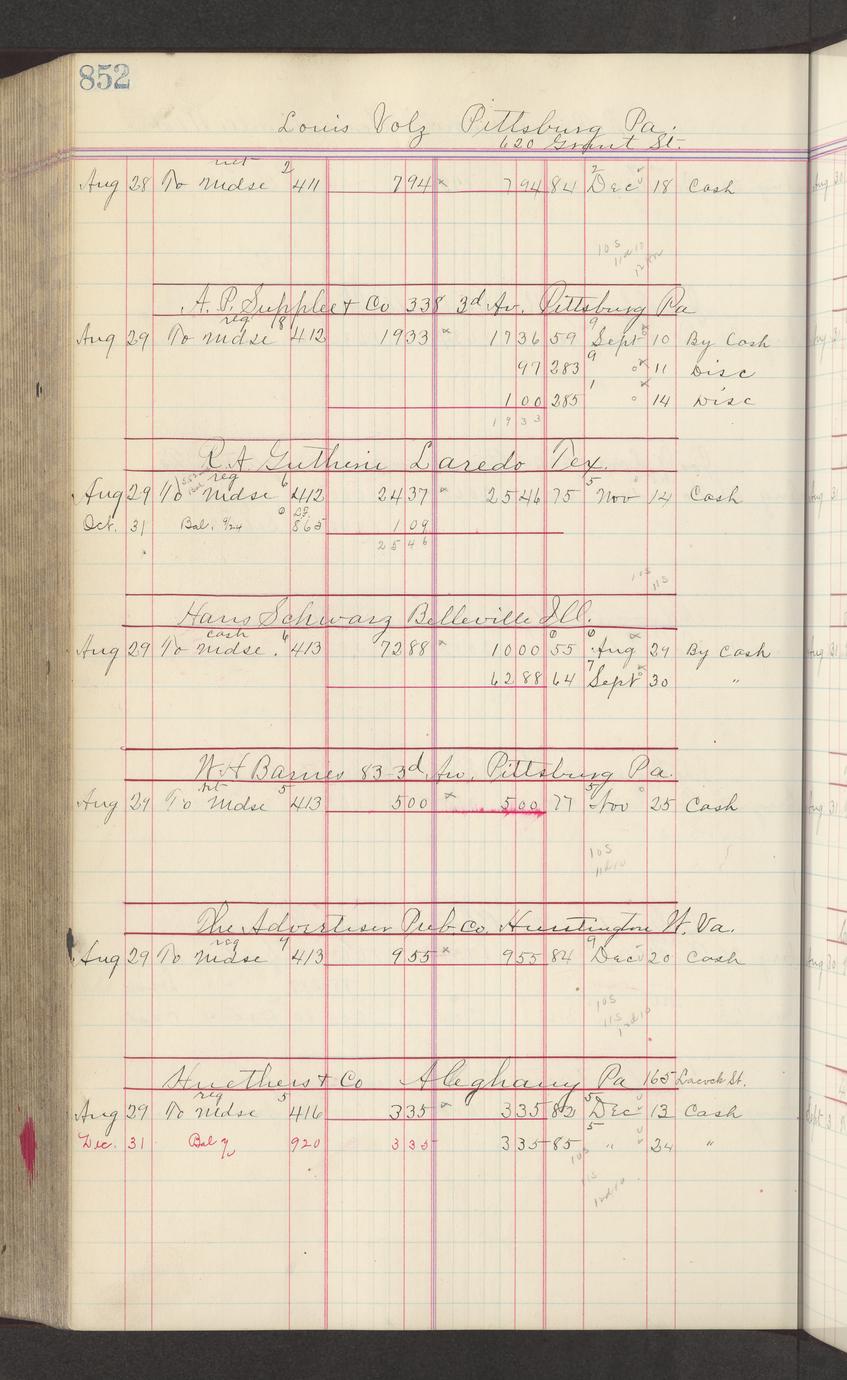 852
Louis Volz Pittsburg Pa.
620 Grant St.
net
Aug 28 To Mdse 2 411 794 x 794 84 2 Dec 18 Cash
10 5
A. P. Supplee & Co 338 3d Av. Pittsburg Pa
reg
Aug 29 To Mdse 8 412 1933 x 1736 59 9 Sept 10 By Cash
97 283 9 11 Disc
100 285 1 14 Disc
1933
R. A Guthrie Laredo Tex.
reg
Aug 29 To Mdse 6 412 2437 x 2546 75 5 Nov 14 Cash
Oct. 31 Bal. 9/24 865 109
2546
10 5 11 5
Hans Schwarz Belleville Ill.
cash
Aug 29 To Mdse. 6 413 7288 x 1000 55 6 Aug 29 By Cash
6288 64 7 Sept 30 "
W. H Barnes 83-3d Av. Pittsburg Pa.
net
Aug 29 To Mdse 5 413 500 x 500 77 5 Nov 25 Cash
10 5
The Advertiser Pub Co. Huntington W. Va.
reg
Aug 29 To Mdse 4 413 955 x 955 84 9 Dec 20 Cash
10 5
11 5
Huethers & Co Aleghany Pa 165 Lacock St.
reg
Aug 29 To Mdse 5 416 335 x 335 82 5 Dec 13 Cash
Dec. 31 Bal 920 335 335 85 5 " 24 "
10 5
11 5